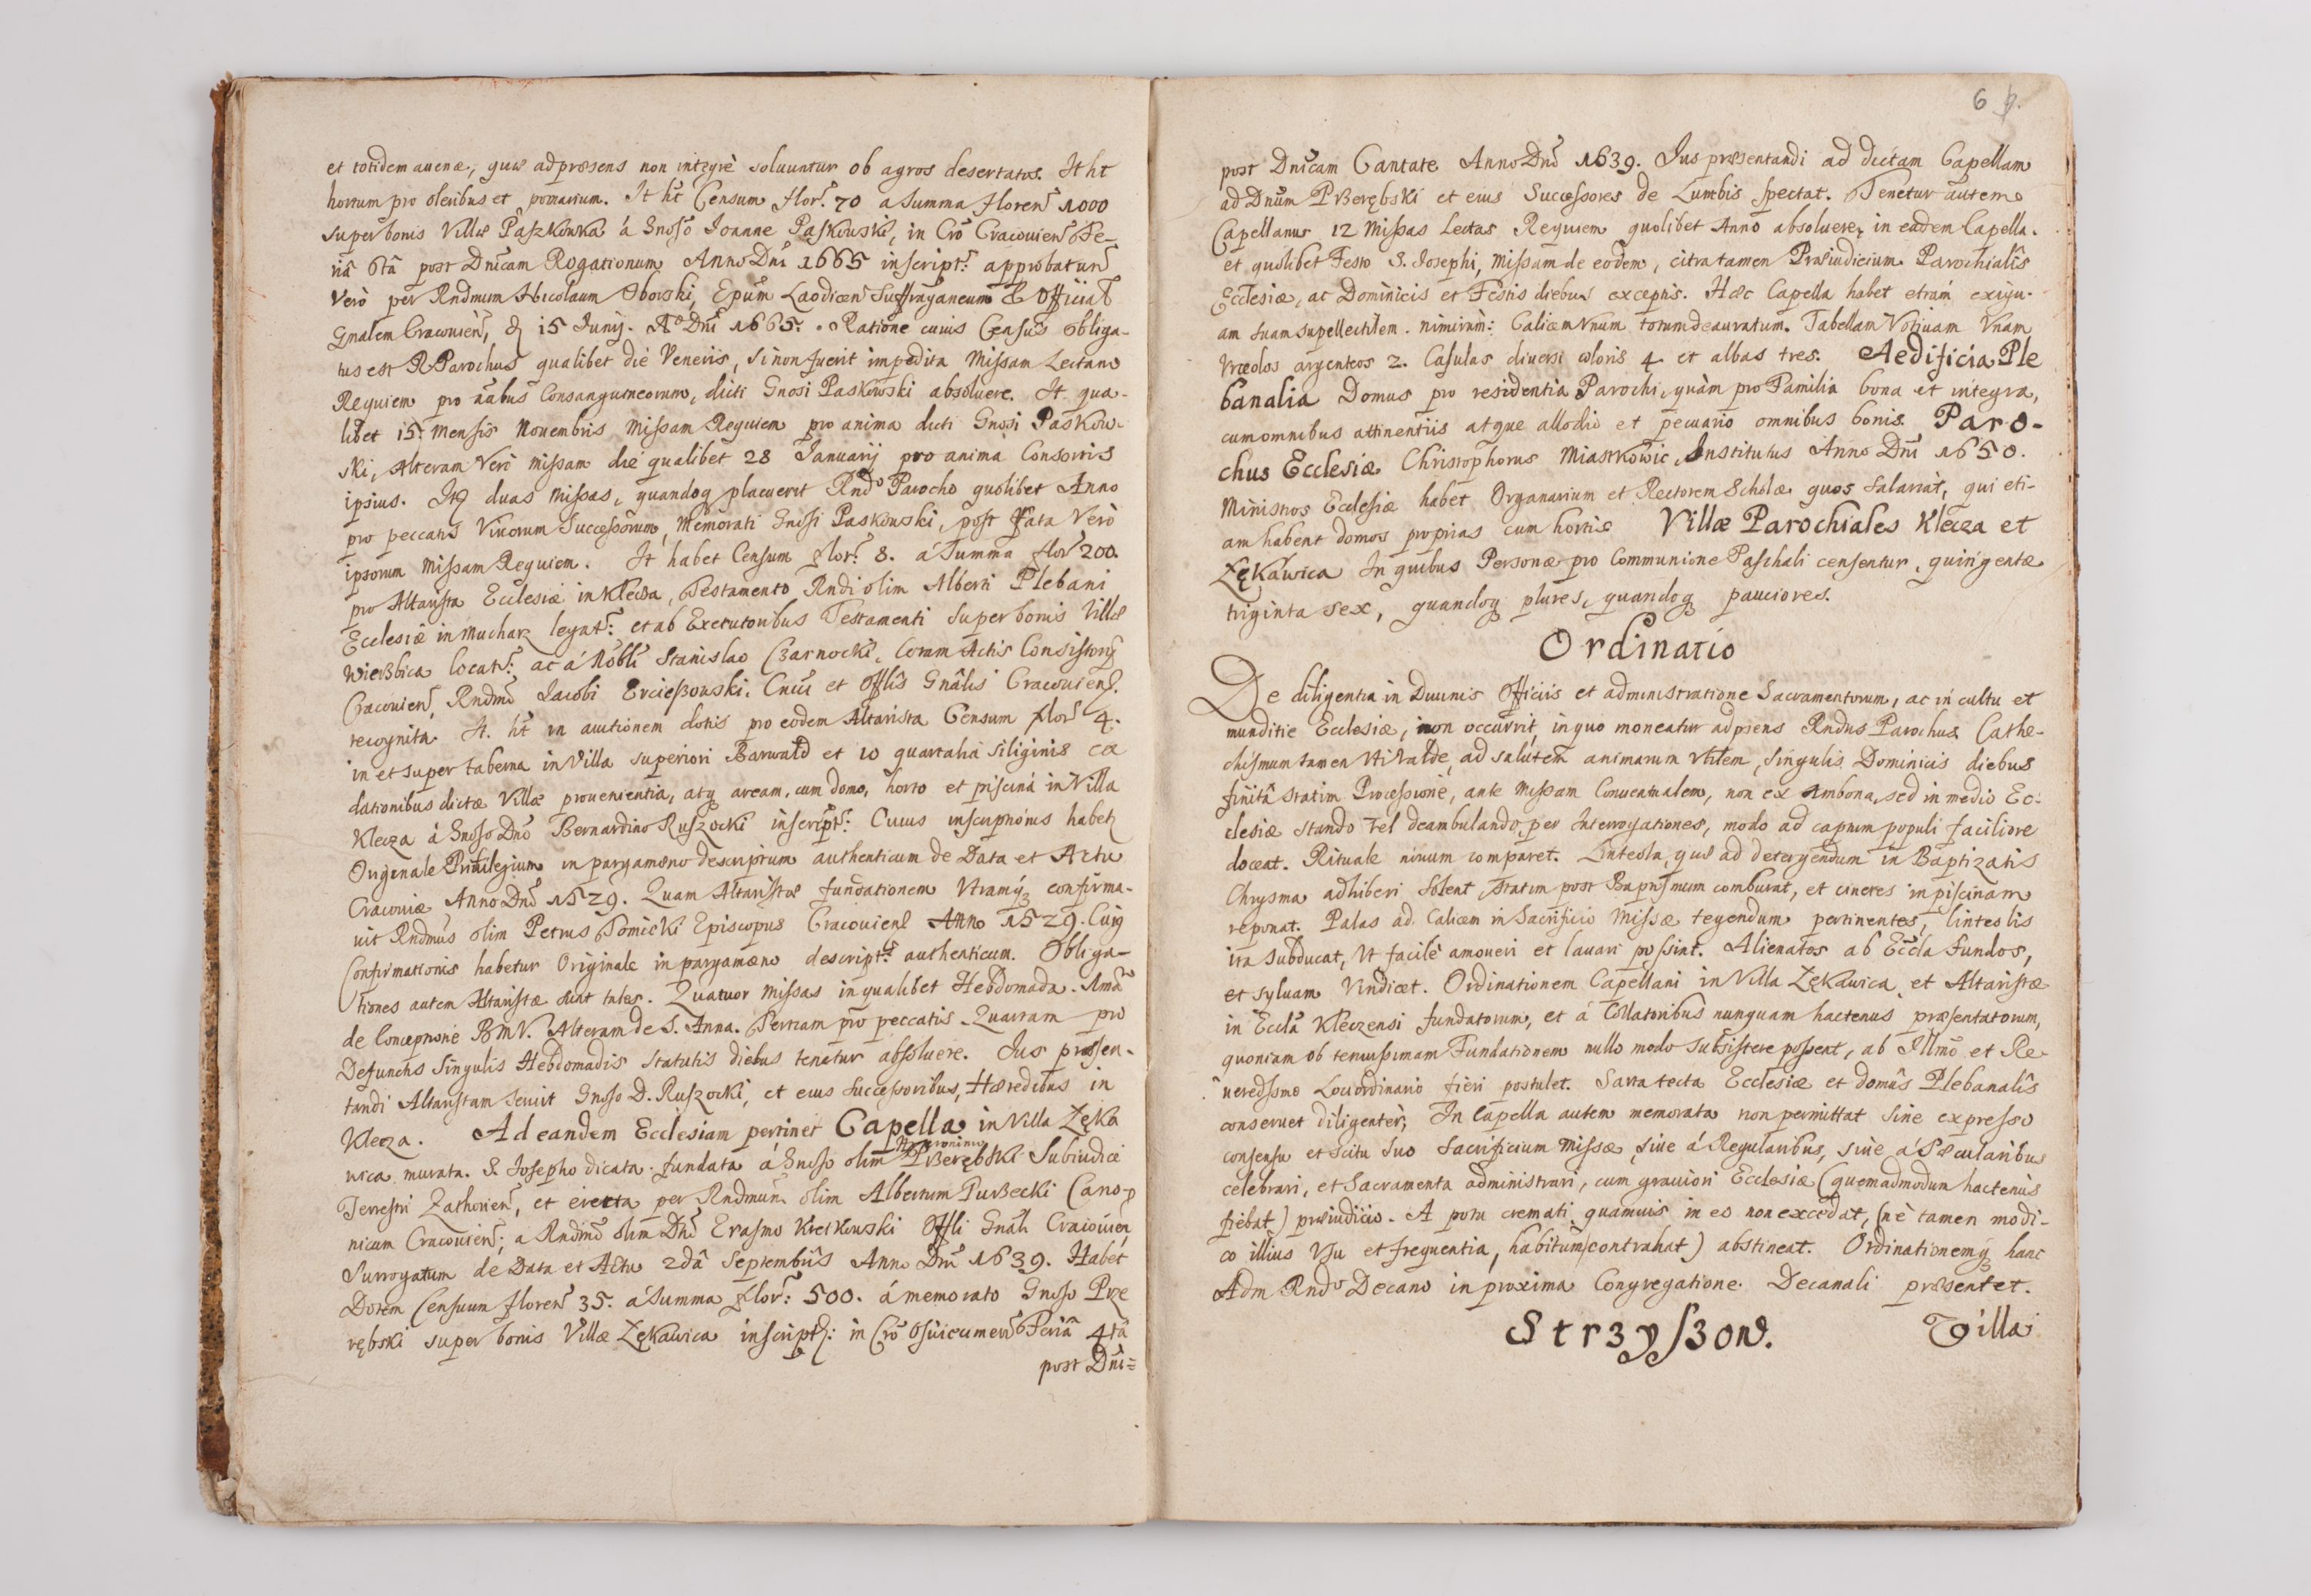 et totidem auenæ, quæ ad præsens non integrè soluuntur ob agros desertatos. It ht
hortum pro oleribus et pomarium. It ht Censum flor. 70 a Summa floren 1000
super bonis Villæ Paszkowka á Gnoso Joanne Paskowski, in Cro Cracouien Fe-
riâ 6tâ post Dnicam Rogationum Anno Dni 1665 inscript: approbatum
Verò per Rndmum Nicolaum Oborski, Epum Laodicen Suffraganeum & Official
Gnalem Cracouien, d 15 Junij. Ao Dni 1665. Ratione cuius Census obliga-
tus est R Parochus qualibet die Veneris, si non fuerit impedita Missam Lectam
Requiem pro aabus Consanguineorum, dicti Gnosi Paskowski absoluere. It qua-
libet 15 Mensis Nouembris Missam Requiem pro anima dicti Gnosi Paskow-
ski, Alteram Verò Missam die qualibet 28 Januarij pro anima Consortis
ipsius. Itq duas Missas, quandoq placuerit Rndo Parocho quolibet Anno
pro peccatis Viuorum Successorum, Memorati Gnosi Paskowski, post Fata Verò
ipsorum Missam Requiem. It habet Censum flor: 8. á Summa flor 200
pro Altarista Ecclesiæ in Klecza, Testamento Rndi olim Alberti Plebani
Ecclesiæ in Mucharz legat: et ab Executoribus Testamenti super bonis Villæ
Wierzbica locat: ac á Nobli Stanislao Czarnocki, Coram Actis Consistorij
Cracouien, Rndmi Jacobi Ercieszowski, Cnci et Offlis Gnâlis Cracouien.
recognita. It. ht in auctionem dotis pro eodem Altarista Censum flor 4.
in et super taberna in Villa superiori Barwald et 10 quartalia siliginis ex
dationibus dictæ Villæ prouenientia, atq aream, cum domo, horto et piscinâ in Villa
Klecza à Gnoso Dno Bernardino Ruszocki inscript: Cuius inscriptionis habetr
Originale Priuilegium in pargameno descriptum authenticum de Data et Actu
Cracouiæ Anno Dni 1529. Quam Altaristæ fundationem Vtramq confirma-
uit Rndmus olim Petrus Tomicki Episcopus Cracouien Anno 1529. Cuiq
Confirmationis habetur Originale in pargameno descript: authenticum. Obliga-
tiones autem Altaristæ sunt tales. Quatuor Missas in qualibet Hebdomada. Vnam
de Conceptione BMV. Alteram de S. Anna. Tertiam pro peccatis. Quartam pro
Defunctis singulis Hebdomadis statutis diebus tenetur absoluere. Jus præsen-
tandi Altaristam seruit Gnoso D. Ruszocki, et eius Successoribus, Hæredibus in
Klecza. Ad eandem Ecclesiam pertinet Capella in Villa Zęka
wica murata. S. Josepho dicata. fundata á Gnoso olim Hieronimo Przerębski Subiudice
Terrestri Zathorien, et erecta per Rndmum olim Albertum Purzecki Cano-
nicum Cracouien; a Rndmo olim Dno Erasmo Kretkowski Offli Gnali Cracouien
Surrogatum de Data et Actu 2dâ Septembris Anno Dni 1639. Habet
Dotem Censuum floren 35. á Summa flor: 500. á memorato Gnoso Prze
rębski super bonis Villæ Zękawica inscript: in Cro Osuiecimen Feriâ 4tâ
post Dni=
6
post Dnicam Cantate Anno Dni 1639. Jus præsentandi ad dictam Capellam
ad Dnum Przerębski et eius Successores de Lumbis spectat. Tenetur autem
Capellanus 12 Missas Lectas Requiem quolibet Anno absoluere, in eadem Capella.
et quolibet Festo S. Josephi, Missam de eodem, citra tamen Præiudicium Parochialis
Ecclesiæ, ac Dominicis et Festis diebus exceptis. Hæc Capella habet etiam exigu-
am suam supellectilem. nimirum: Calicem Vnum totum deauratum. Tabellam Votiuam Vnam
Vrceolos argenteos 2. Casulas diuersi coloris 4 et albas tres. Aedificia Ple
banalia Domus pro residentia Parochi, quàm pro Familia bona et integra,
cum omnibus attinentiis atque allodio et pecuario omnibus bonis. Paro-
chus Ecclesiæ Christophorus Miastkowic, Institutus Anno Dni 1650.
Ministros Ecclesiæ habet Organarium et Rectorem Scholæ quos salariat, qui eti-
am habent domos proprias cum hortis Villæ Parochiales Klecza et
Zękawica In quibus Personæ pro Communione Paschali censentur, quingentæ
triginta sex, quandoq plures, quandoq pauciores.
Ordinatio
De diligentia in Diuinis Officiis et administratione Sacramentorum, ac in cultu et
munditie Ecclesiæ, non occurrit, in quo moneatur ad præsens Rndus Parochus. Cathe-
chismum tamen Vti Valde, ad salutem animarum vtilem, singulis Dominicis diebus
finitâ statim Processione, ante Missam Conuentualem, non ex Ambona, sed in medio Ec-
clesiæ stando Vel deambulando, per Interrogationes, modo ad captum populi faciliore
doceat. Rituale nouum comparet. Linteola, quæ ad detergendum in Baptizatis
Chrysma adhiberi solent, statim post Baptismum comburat, et cineres in piscinam
reponat. Palas ad Calicem in Sacrificio Missæ tegendum pertinentes, linteolis
ita subducat, Vt facilè amoueri et lauari possint. Alienatos ab Eccla fundos,
et syluam Vindicet. Ordinationem Capellani in Villa Zękawica, et Altaristæ
in Eccla Kleczensi fundatorum, et á Collatoribus nunquam hactenus præsentatorum,
quoniam ob tenuissimam Fundationem nullo modo subsistere possent, ab Illmo et Re-
uerdssmo Lociordinario fieri postulet. Sarta tecta Ecclesiæ et domûs Plebanalis
conseruet diligenter, In Capella autem memorata non permittat sine expresso
consensu et scitu suo Sacrificium Missæ, siue á Regularibus, siue á Sæcularibus
celebrari, et Sacramenta administrari, cum grauiori Ecclesiæ (quemadmodum hactenus
fiebat) præiudicio. A potu cremati quamuis in eo non excedat, (nè tamen modi-
co illius Vsu et frequentia, habitum contrahat) abstineat. Ordinationemq hanc
Adm Rndo Decano in proxima Congregatione Decanali præsentet.
Strzyszow. Villa